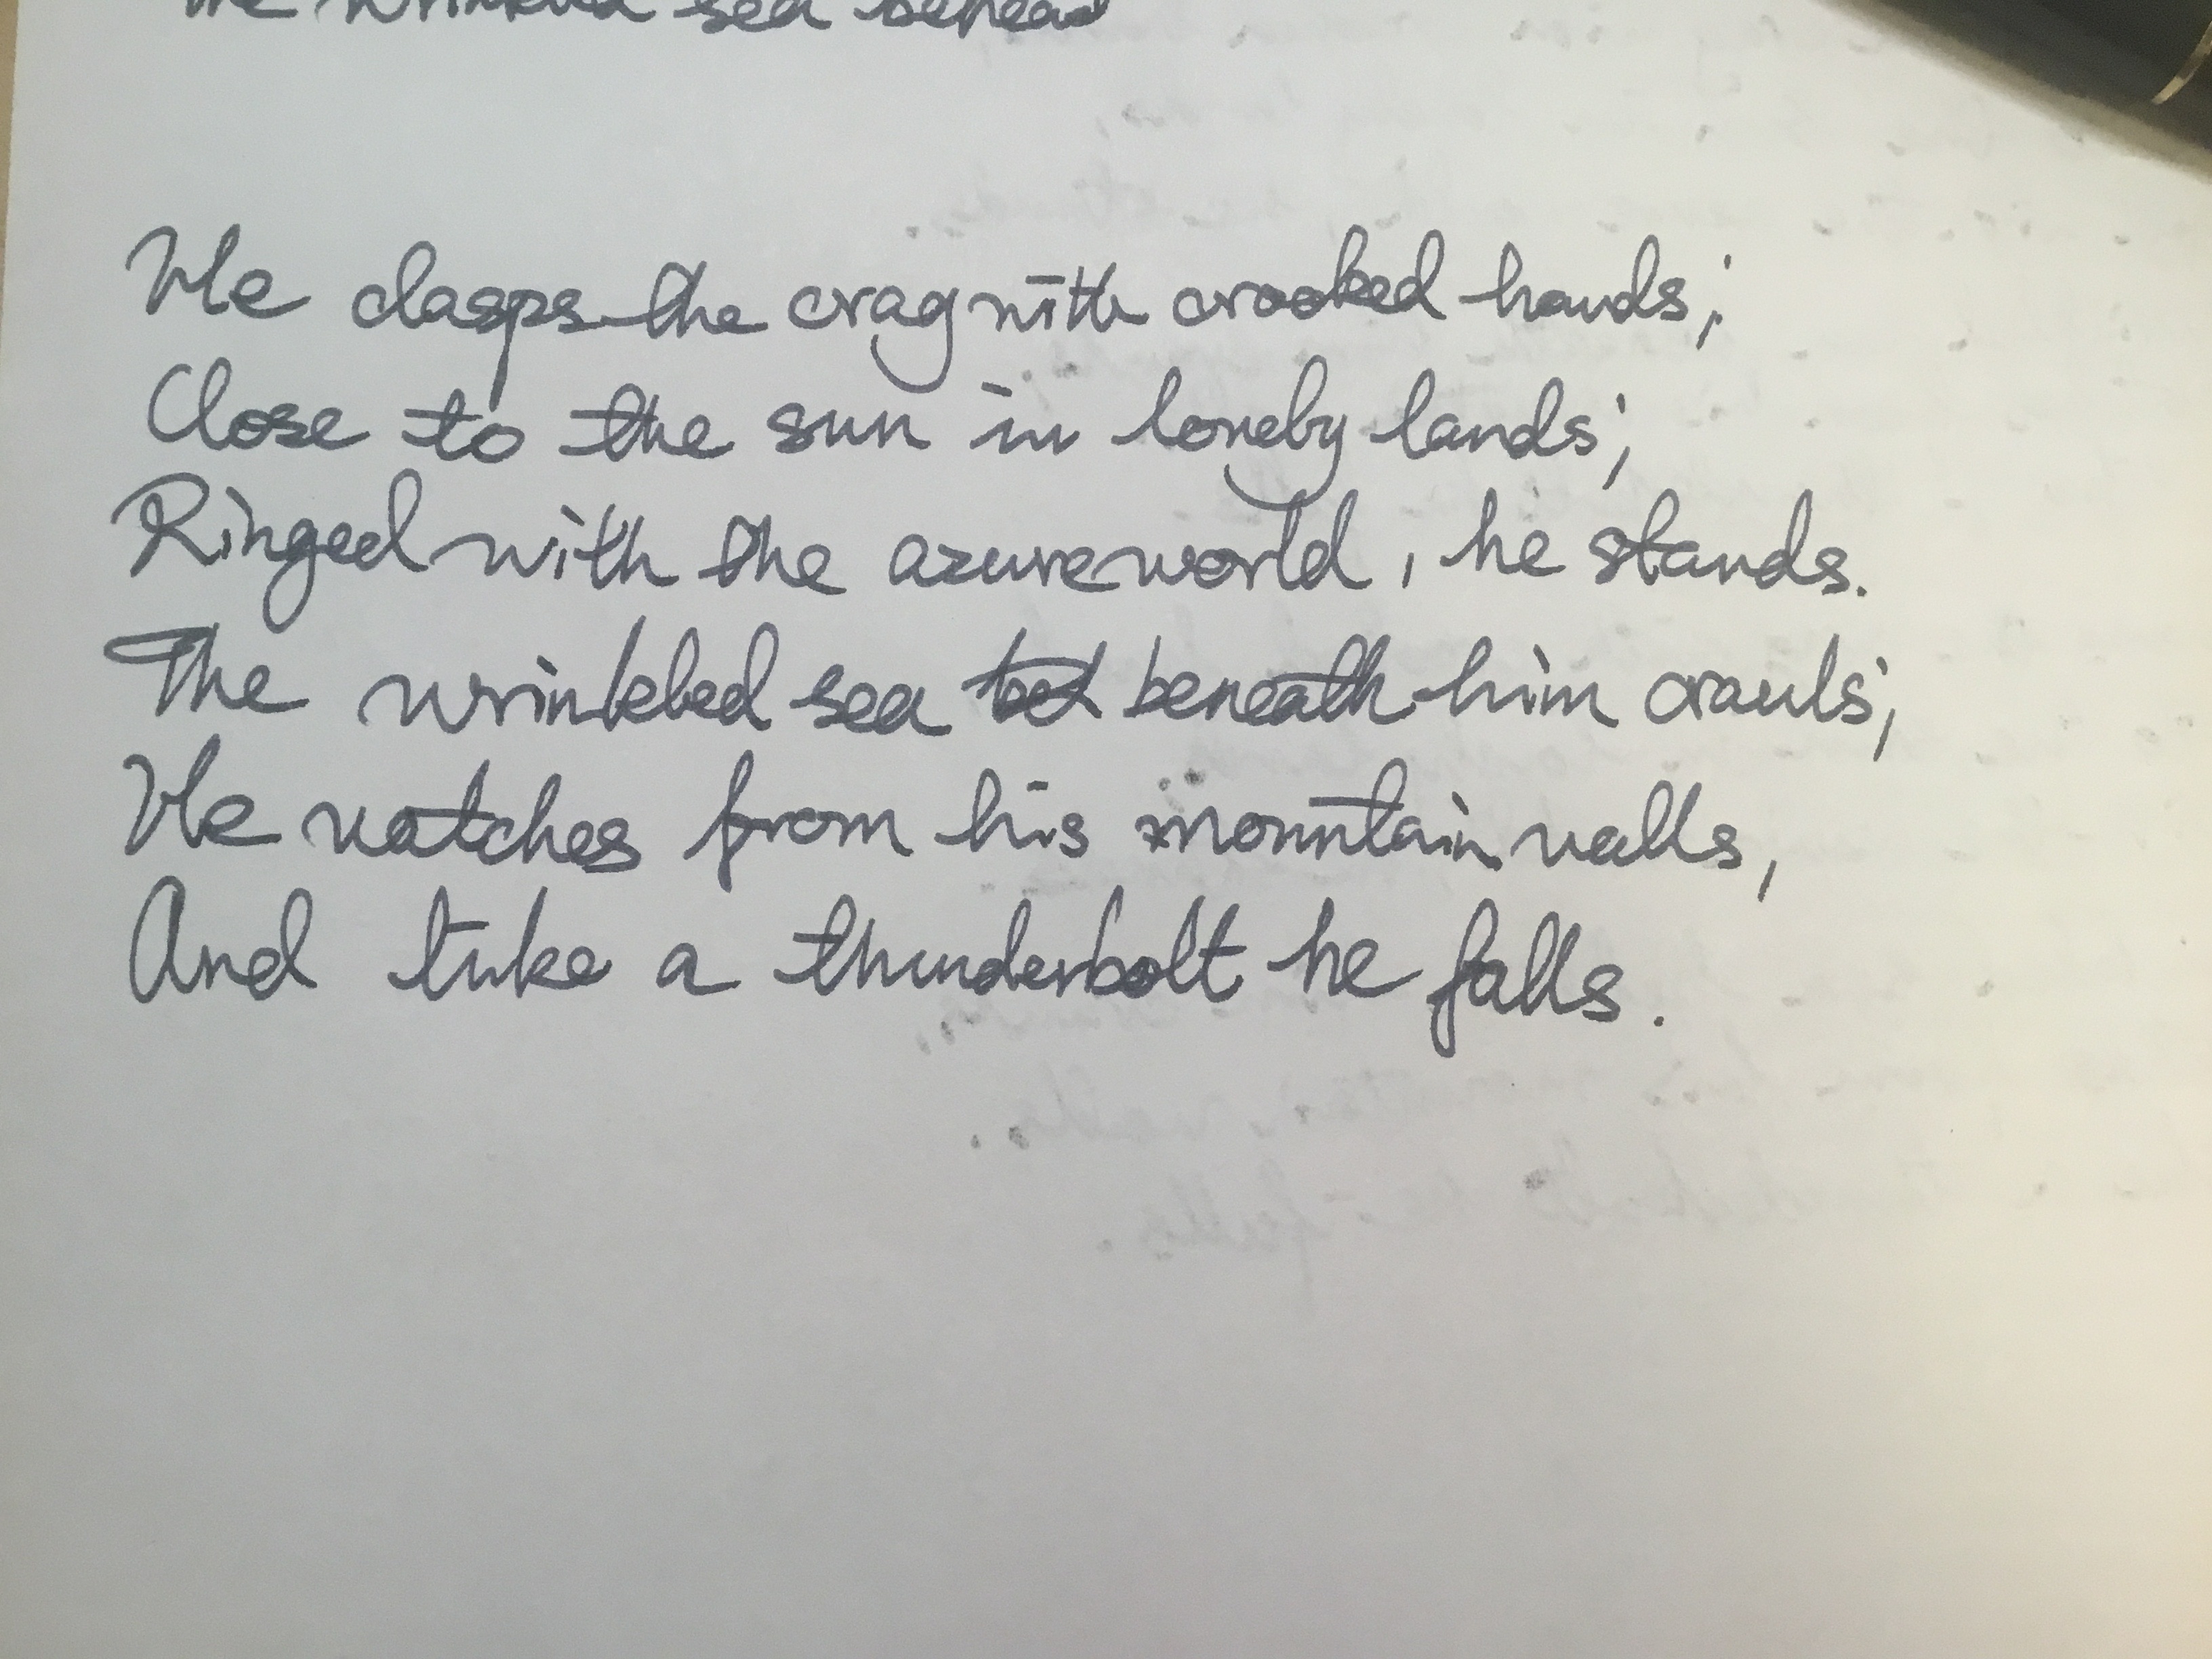 The wrinkled sea benea
He clasps the crag with crooked hands;
Close to the sun in lonely lands;
Ringed with the azure world, he stands.
The wrinkled sea beneath him crawls;
He watches from his mountain walls,
And tuke a thunderbolt he falls.